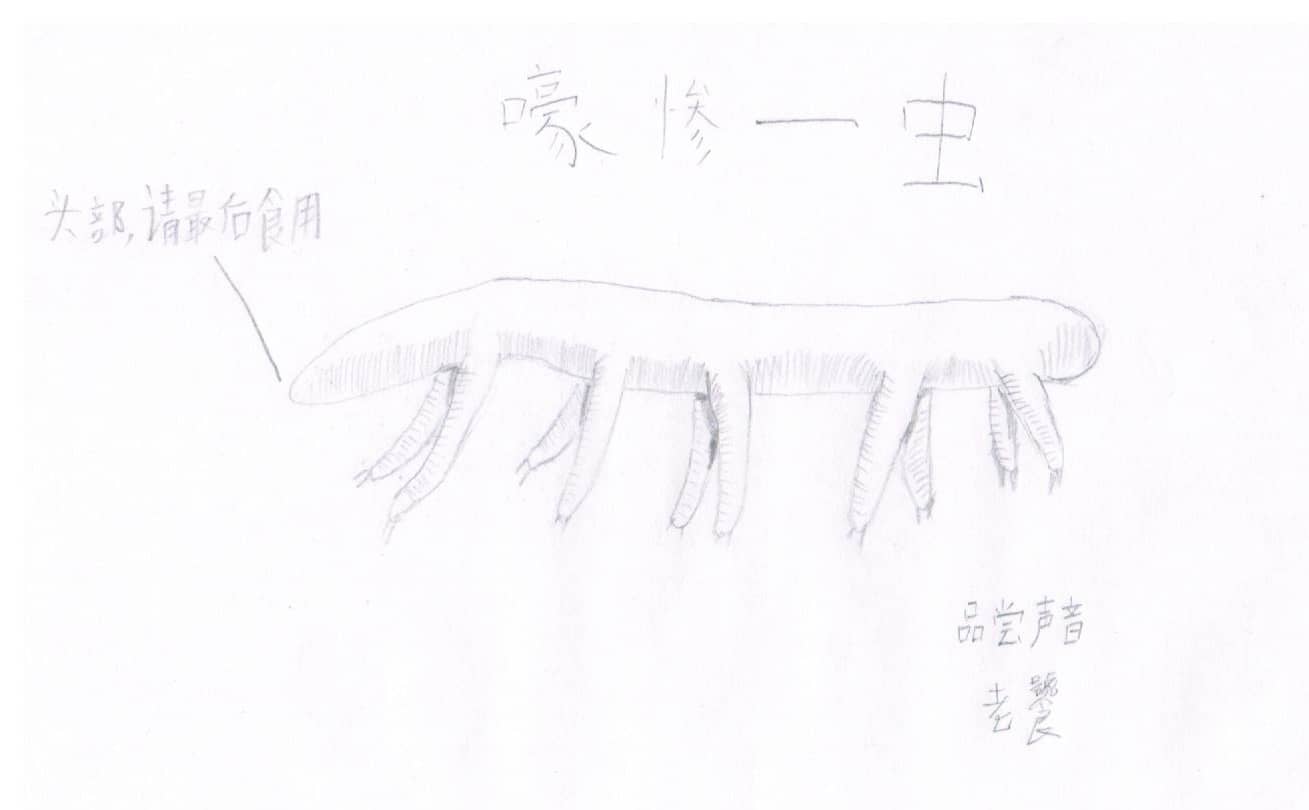 嚎惨一虫
头部,请最后食用
品尝声音
老饕